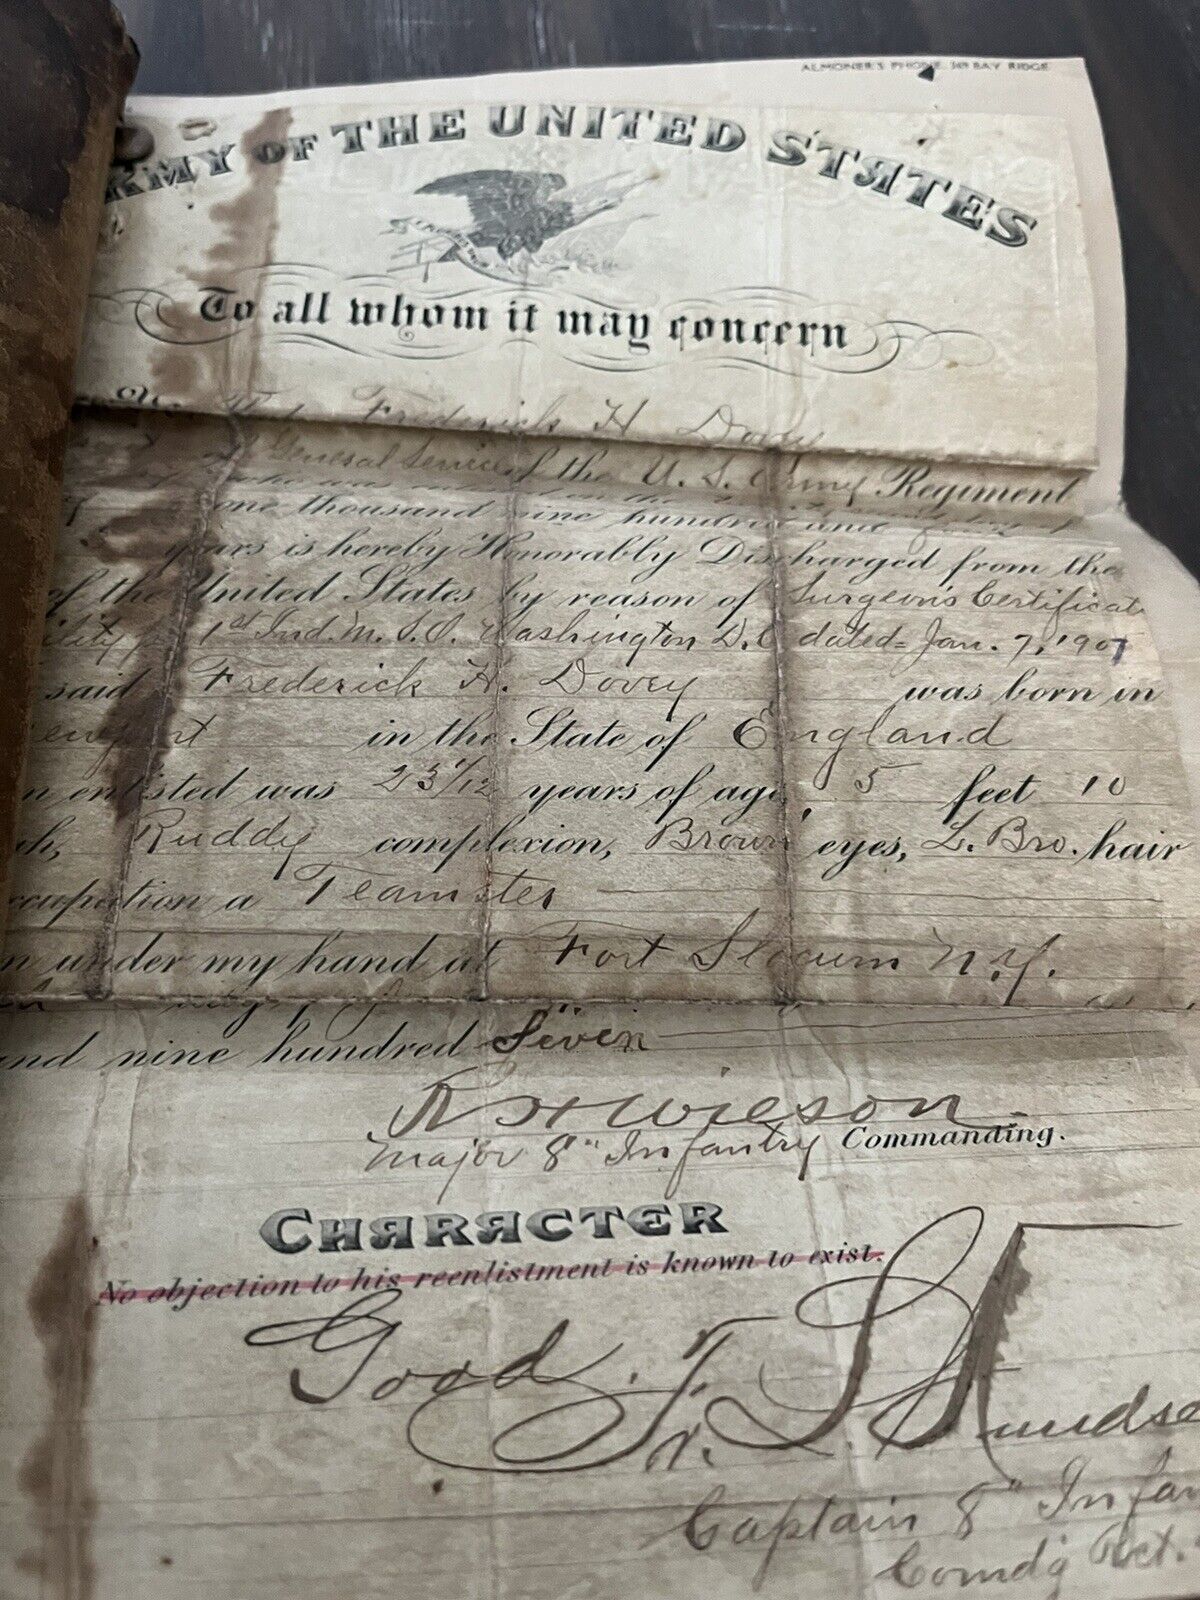 ALMONER'S PHONE, 349 BAY RIDGE
ARMY OF THE UNITED STATES
To all whom it may concern
Frederick H. Dovey
General Service of the U. S. Army Regiment
who was enlisted on the
one thousand nine hundred and
years is hereby Honorably Discharged from the
of the United States by reason of Surgeon's Certificate
1st Ind. M. S. O. Washington D. C. dated Jan. 7, 1907
said Frederick H. Dovey was born in
in the State of England
enlisted was 23 1/12 years of age, 5 feet 10
Ruddy complexion, Brown eyes, L. Bro. hair
occupation a Teamster
under my hand at Fort Slocum N.Y.
and nine hundred Seven
R H Wilson
Major 8" Infantry Commanding.
CHARACTER
No objection to his reenlistment is known to exist.
Good.
Captain 8" Infan
Comdg